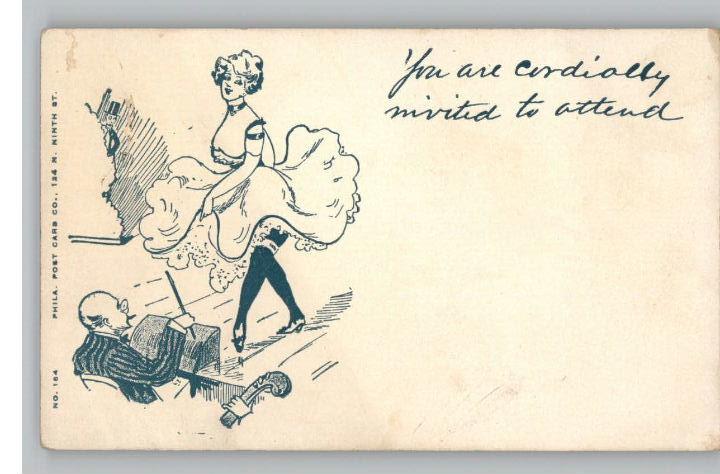 You are cordially
invited to attend
PHILA. POST CARD CO., 134 N. NINTH ST.
NO. 164